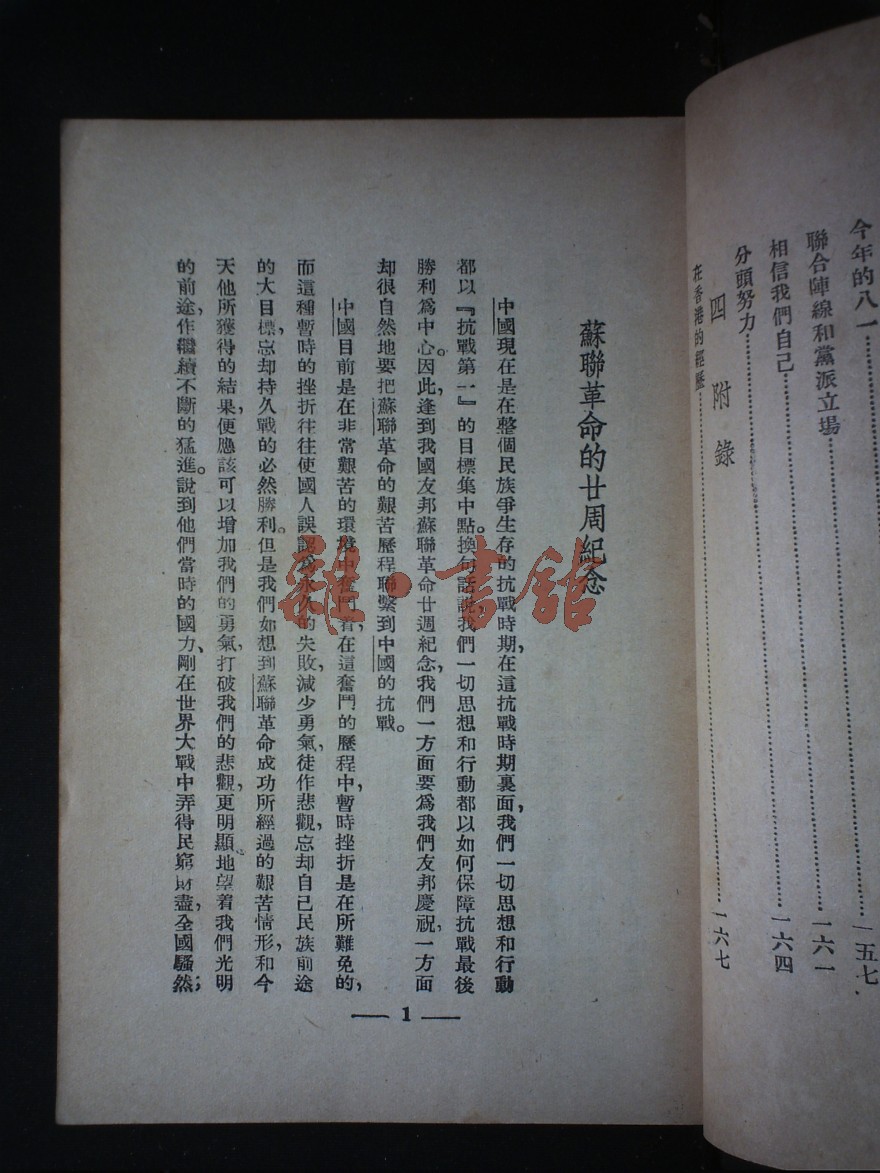 今年的八一……………………一五七
聯合陣線和黨派立場……………………一六一
相信我們自己……………………一六四
分頭努力……………………一六七
四 附錄
在香港的經歷……………………
蘇聯革命的廿周紀念
中國現在是在整個民族爭生存的抗戰時期,在這抗戰時期裏面,我們一切思想和行動
都以『抗戰第一』的目標集中點。換句話說,我們一切思想和行動都以如何保障抗戰最後
勝利爲中心。因此,逢到我國友邦蘇聯革命廿週紀念,我們一方面要爲我們友邦慶祝,一方面
却很自然地要把蘇聯革命的艱苦歷程聯繫到中國的抗戰。
中國目前是在非常艱苦的環境中奮鬥着,在這奮鬥的歷程中,暫時挫折是在所難免的,
而這種暫時的挫折往往使國人誤認爲永久的失敗,減少勇氣,徒作悲觀,忘却自己民族前途
的大目標,忘却持久戰的必然勝利。但是我們如想到蘇聯革命成功所經過的艱苦情形,和今
天他所獲得的結果,便應該可以增加我們的勇氣,打破我們的悲觀,更明顯地望着我們光明
的前途,作繼續不斷的猛進。說到他們當時的國力、剛在世界大戰中弄得民窮財盡,全國騷然;
— 1 —
雜·書舘